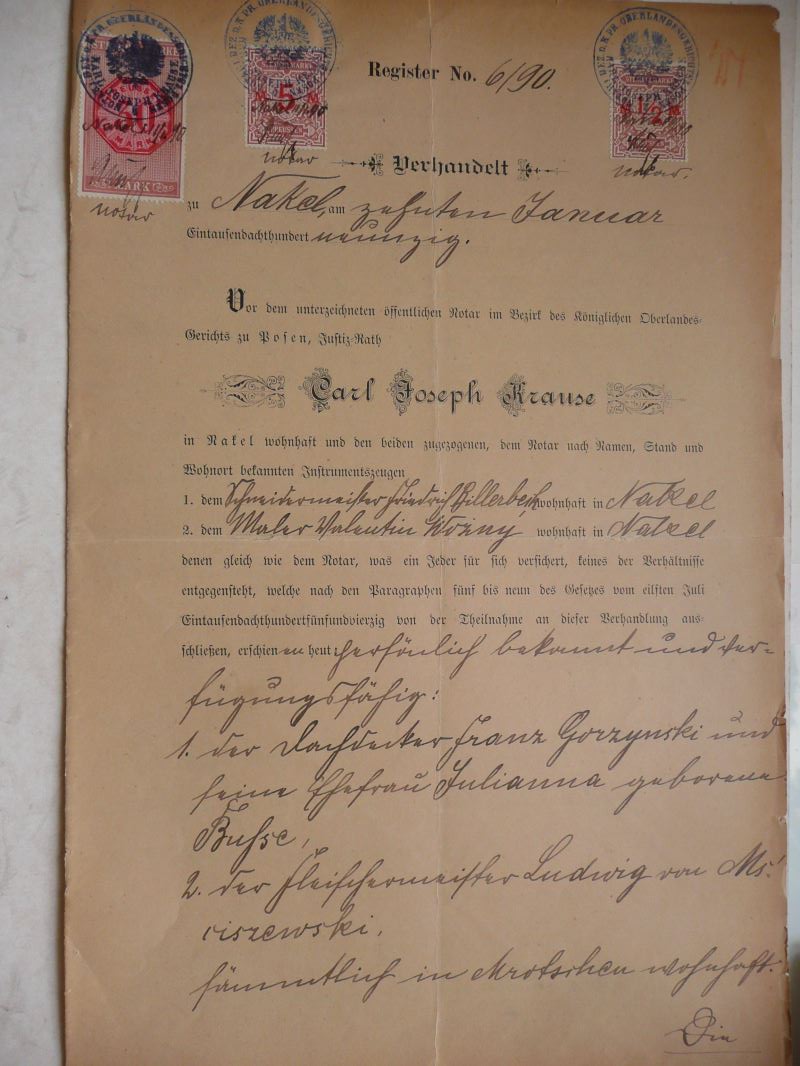 Register No. 6/90.
notar
notar
notar.
Verhandelt
zu Nakel, am zehnten Januar
Eintausendachthundert neunzig.
Vor dem unterzeichneten öffentlichen Notar im Bezirk des Königlichen Oberlandes-
Gerichts zu Posen, Justiz-Rath
Carl Joseph Krause
in Nakel wohnhaft und den beiden zugezogenen, dem Notar nach Namen, Stand und
Wohnort bekannten Instrumentszeugen
1. dem Schneidermeister Friedrich Hillerbech wohnhaft in Nakel
2. dem Maler Valentin Rożny wohnhaft in Nakel
denen gleich wie dem Notar, was ein Jeder für sich versichert, keines der Verhältnisse
entgegensteht, welche nach den Paragraphen fünf bis neun des Gesetzes vom eilften Juli
Eintausendachthundertfünfundvierzig von der Theilnahme an dieser Verhandlung aus-
schließen, erschienen heut persönlich bekannt und ver-
fügungsfähig:
1. der Dachdecker Franz Gorzynski und
seine Ehefrau Julianna geborene
Busse,
2. der Fleischermeister Ludwig von Ms-
ciszewski,
sämmtlich in Mrotschen wohnhaft.
Die